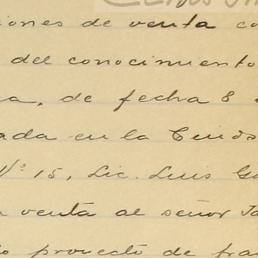 ciones de venta co
del conocimiento
a, de fecha 8
ada en la Ciud
Nº 15, Lic. Luis G
venta al señor
proyecto de fra